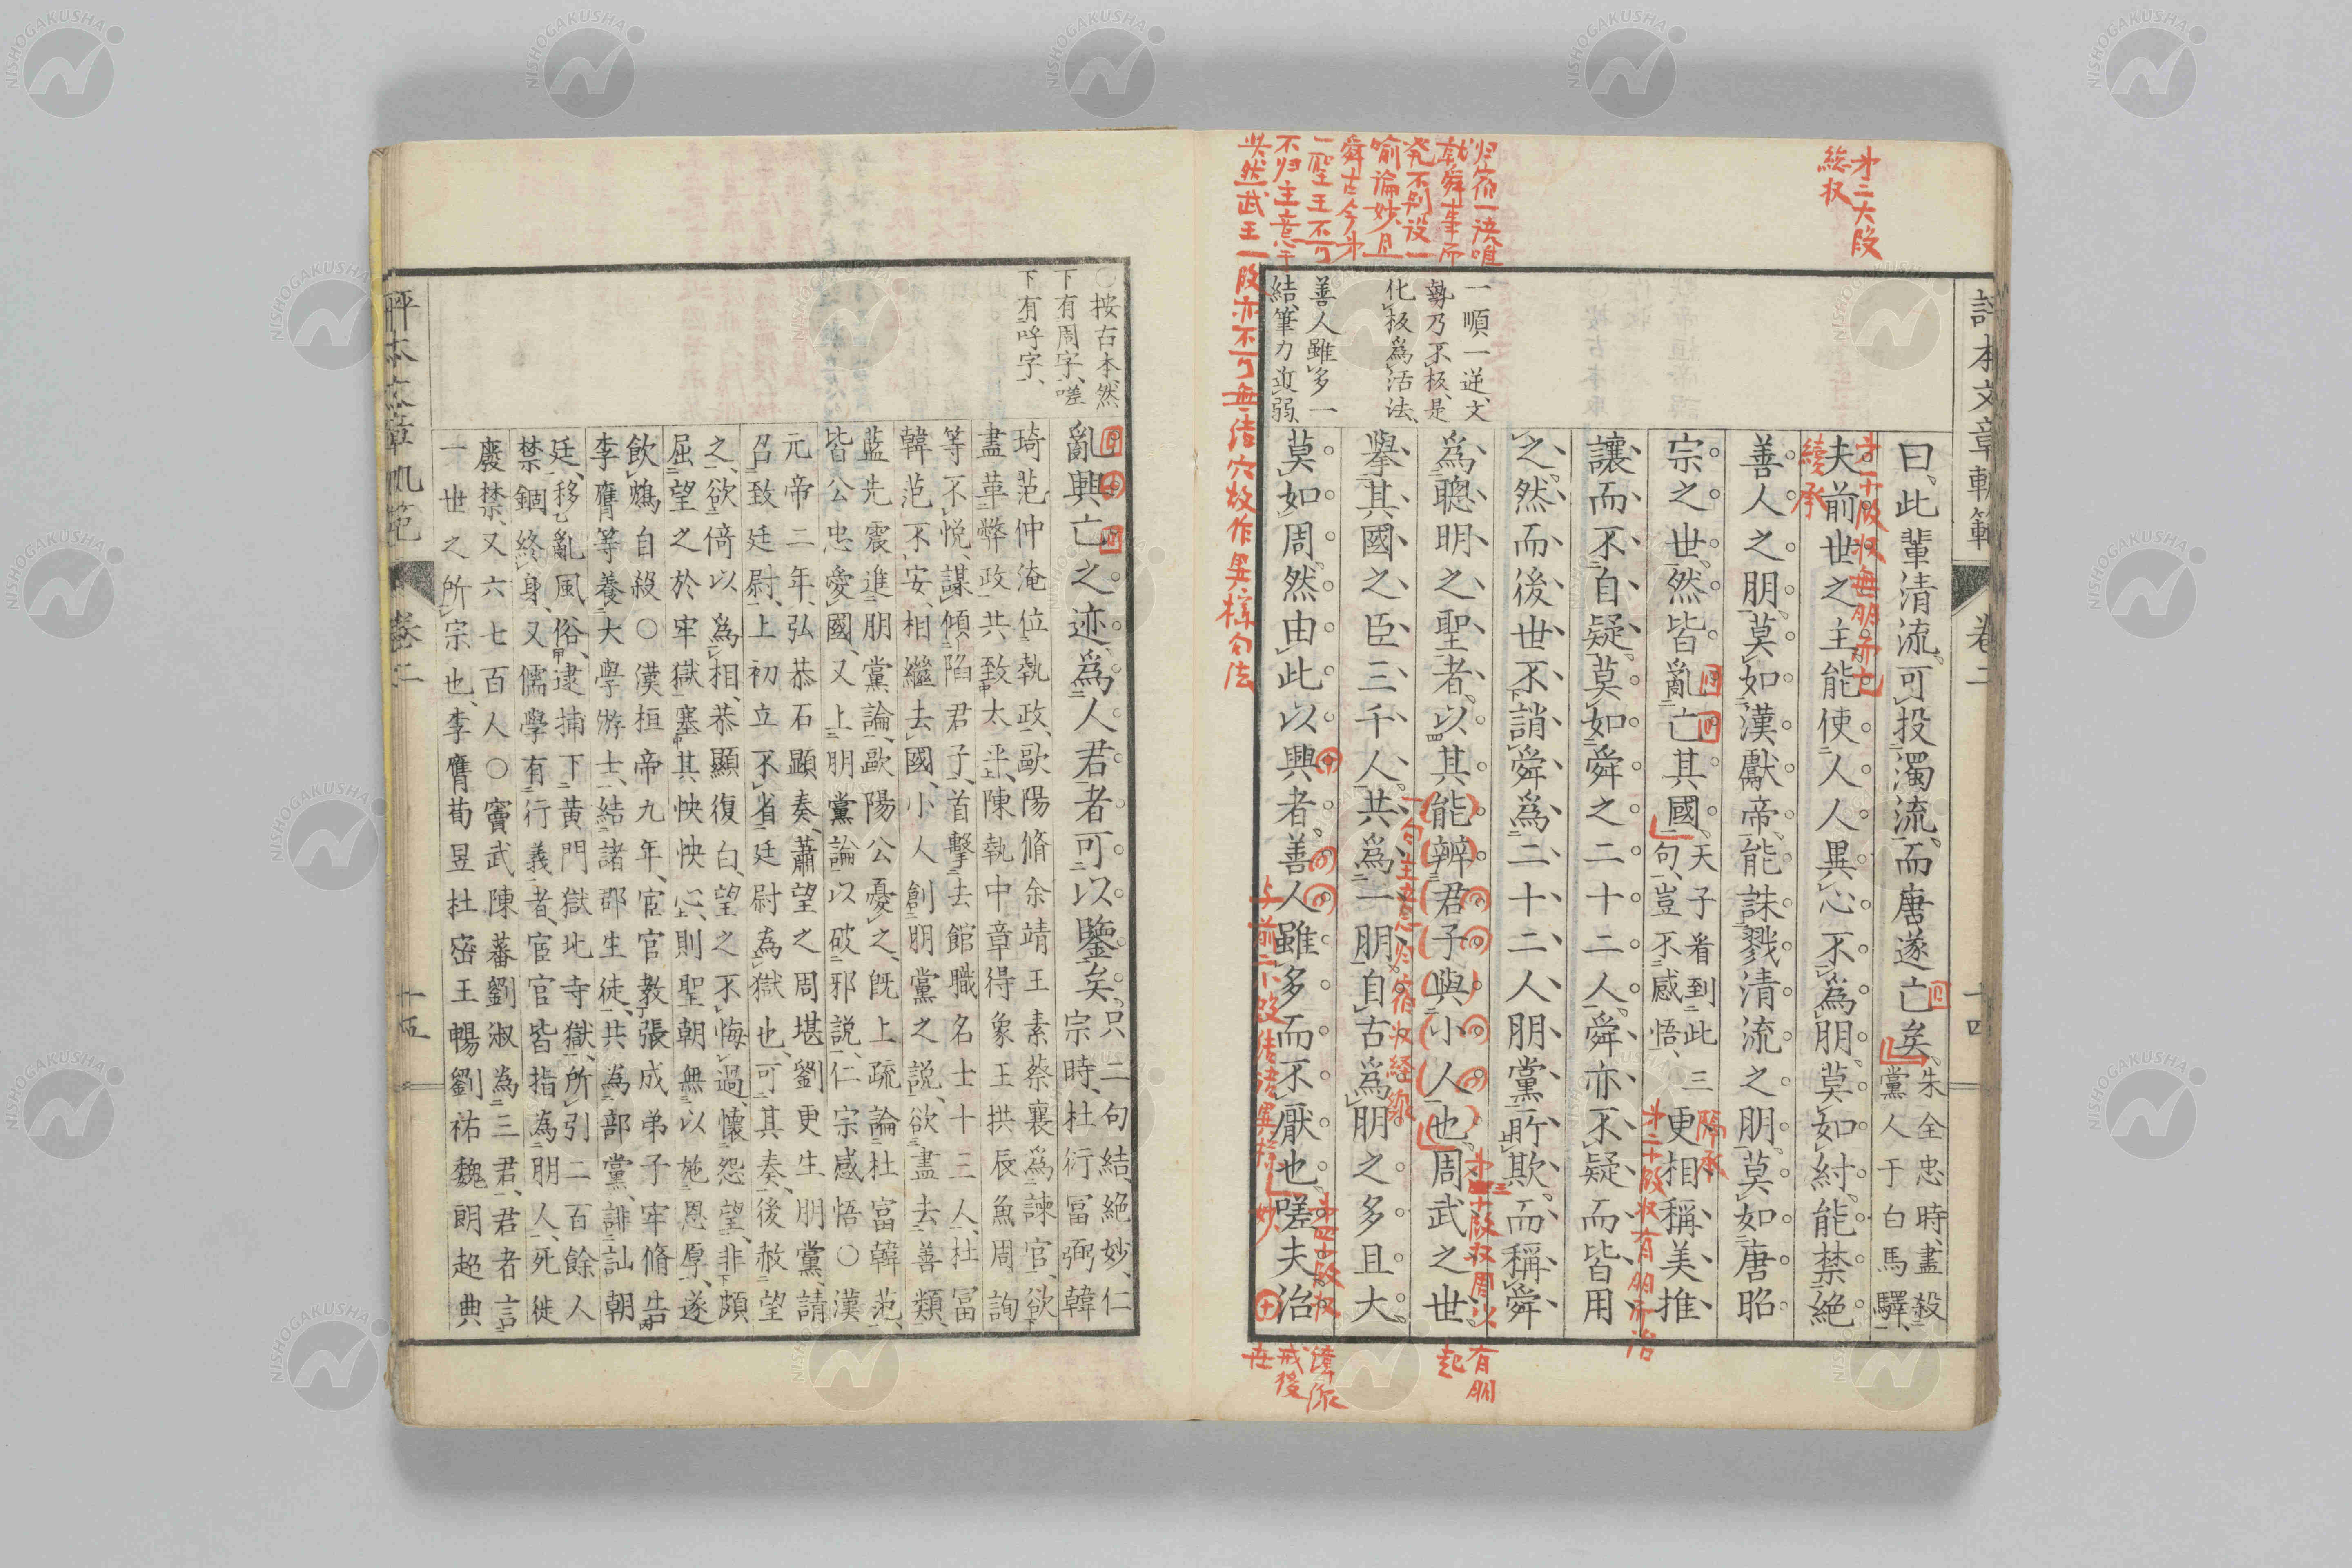 評本文章軌範
卷二
十四
第二大段
総収
曰此輩清流可投濁流而唐遂亡矣朱全忠時盡殺
黨人于白馬驛
第一小段收無朋亦亡
繞承
夫前世之主能使人人異心不為朋莫如紂能禁絕
善人之朋莫如漢獻帝能誅戮清流之朋莫如唐昭
宗之世然皆亂亡其國天子看到此三
句豈不感悟更相稱美推
隔承
第二小段收有朋而治
讓而不自疑莫如舜之二十二人舜亦不疑而皆用
之然而後世不誚舜為二十二人朋黨所欺而稱舜
為聰明之聖者以其能辨君子與小人也周武之世
第三小段収周以
有朋
起
擧其國之臣三千人共為一朋自古為朋之多且大
莫如周然由此以興者善人雖多而不厭也嗟夫治
一順一逆文
勢乃不板是
化板為活法
善人雖多一
結筆力近弱
喻論妙且
舜古今第
一聖王不可
不归主意于
此然武王一段亦不可無結穴故作異樣句法
戒後
世
亂興亡之迹為人君者可以鑒矣只二句結絕妙仁
宗時杜衍富弼韓
○按古本然
下有周字嗟
下有呼字
琦范仲淹位執政歐陽脩余靖王素蔡襄為諫官欲
盡革弊政共致太平陳執中章得象王拱辰魚周詢
等不悦謀傾陷君子首擊去館職名士十三人杜富
韓范不安相繼去國小人創朋黨之説欲盡去善類
藍先震進朋黨論歐陽公憂之既上疏論杜富韓范
皆公忠愛國又上朋黨論以破邪説仁宗感悟○漢
元帝二年弘恭石顯奏蕭望之周堪劉更生朋黨請
召致廷尉上初立不省廷尉為獄也可其奏後赦望
之欲倚以為相恭顯復白望之不悔過懷怨望非頗
屈望之於牢獄塞其怏怏心則聖朝無以施恩厚遂
飲鴆自殺○漢桓帝九年宦官教張成弟子牢脩告
李膺等養大學游士結諸郡生徒共為部黨誹訕朝
廷移亂風俗逮捕下黃門獄北寺獄所引二百餘人
禁錮終身又儒學有行義者宦官皆指為朋人死徙
廢禁又六七百人○竇武陳蕃劉淑為三君君者言
一世之所宗也李膺荀昱杜密王暢劉祐魏朗趙典
評本文章軌範
卷二
十五